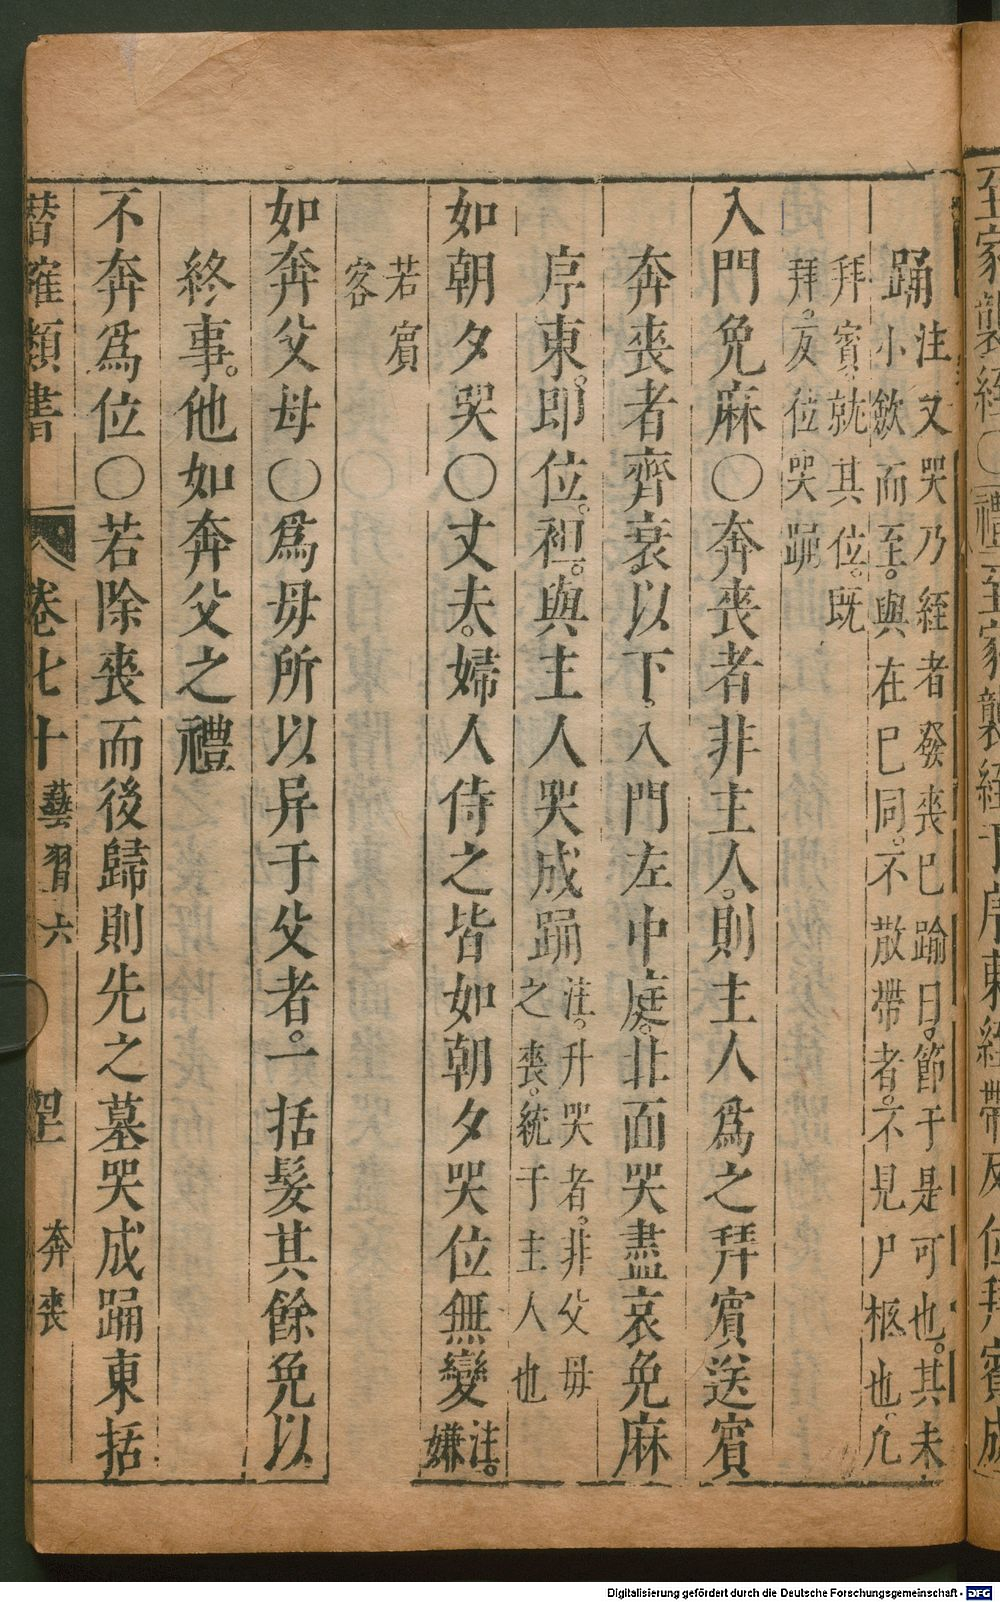 至家襲絰〇禮至家襲絰于序東絰帶反位拜賓成
踊注又哭乃絰者發喪巳踰日。節于是可也。其未
小斂而至。與在巳同。不散帶者。不見尸柩也。凢
拜賓就其位。既
拜。反位哭踊
入門免麻〇奔喪者非主人。則主人爲之拜賓送賓
奔喪者齊衰。以下。入門左中庭。北面哭盡哀免麻
序東。即位。袒。與主人哭成踊注。升哭者。非父母
之喪。統于主人也
如朝夕哭〇丈夫。婦人侍之皆如朝夕哭位無變注。
嫌
若賓
客
如奔父母〇爲母所以异于父者。一括髪其餘免以
終事。他如奔父之禮
不奔爲位〇若除喪而後歸則先之墓哭成踊東括
潛確類書 卷七十 藝習六 奔喪
Digitalisierung gefördert durch die Deutsche Forschungsgemeinschaft - DFG